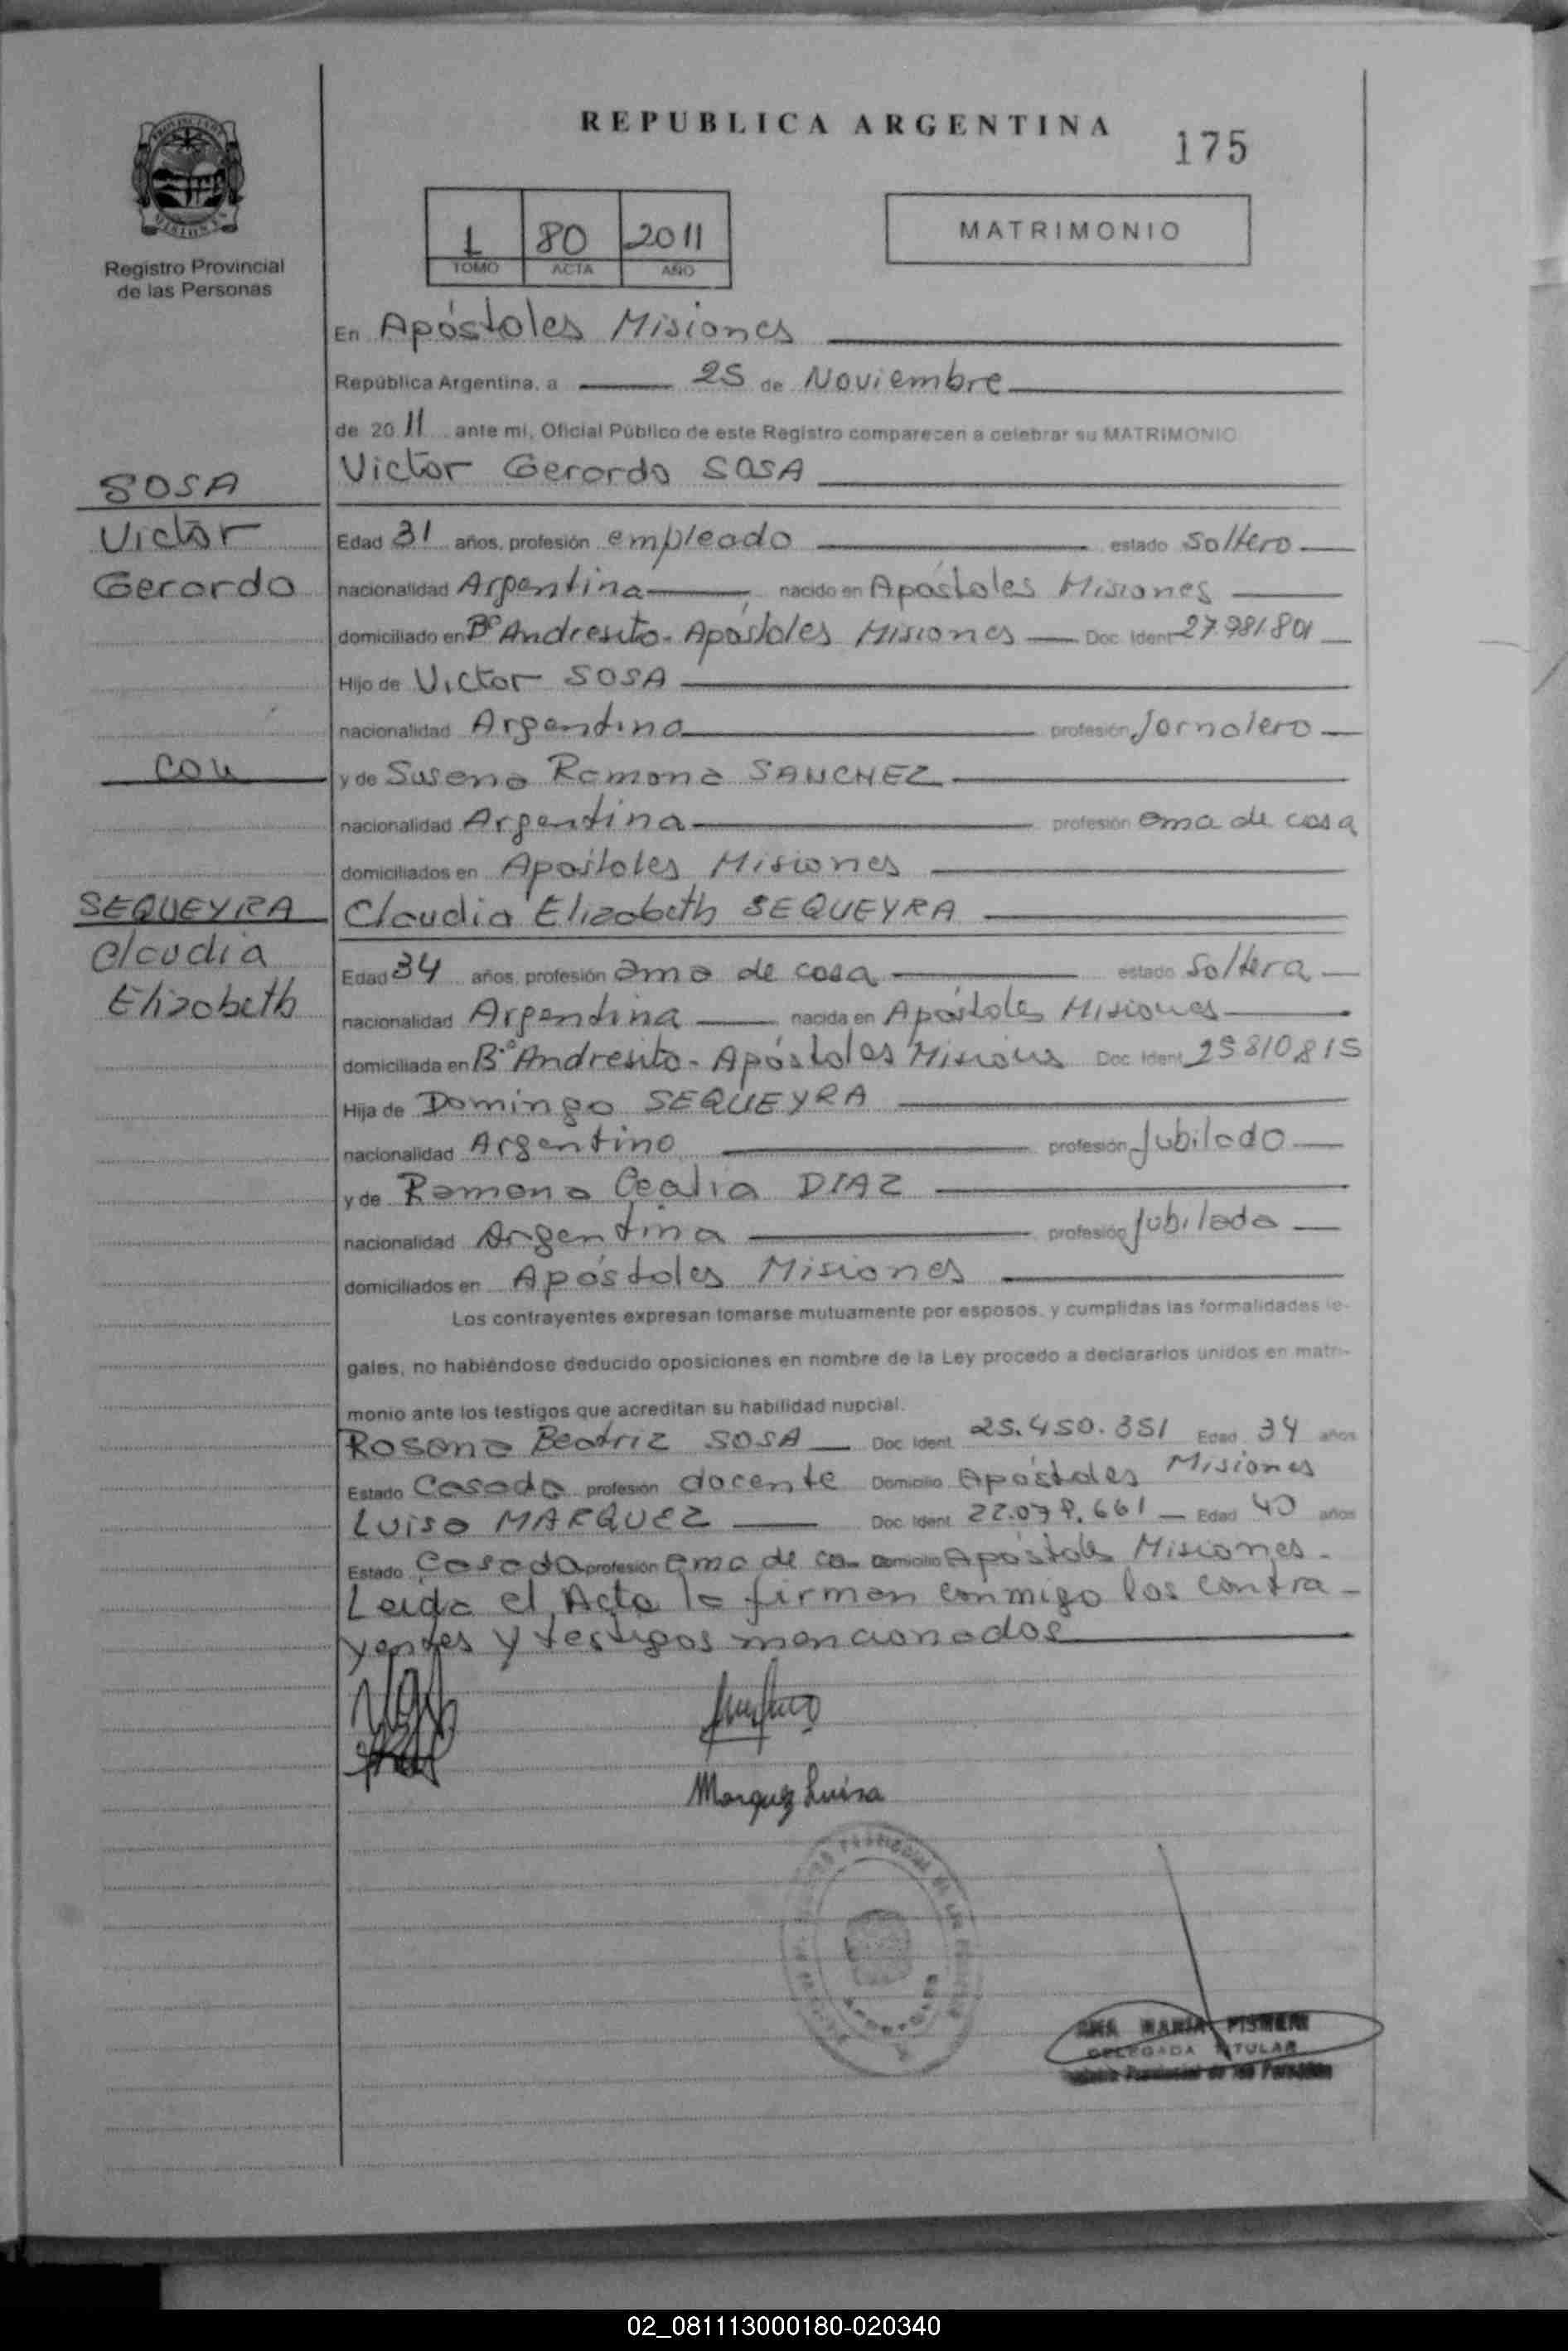 REPUBLICA ARGENTINA
175
Registro Provincial
de las Personas
1 80 2011
TOMO ACTA AÑO
MATRIMONIO
En Apóstoles Misiones
República Argentina, a 25 de Noviembre
de 2011 ante mi, Oficial Público de este Registro comparecen a celebrar su MATRIMONIO
SOSA
Victor Gerardo SOSA
Victor
Edad 31 años, profesión empleado estado Soltero
Gerardo
nacionalidad Argentina, nacido en Apóstoles Misiones
domiciliado en Bº Andresito - Apóstoles Misiones Doc. Ident 27.981.801
Hijo de Victor SOSA
nacionalidad Argentina profesión Jornalero
con
y de Susana Ramona SANCHEZ
nacionalidad Argentina profesión ama de casa
domiciliados en Apóstoles Misiones
SEQUEYRA
Claudia Elizabeth SEQUEYRA
Claudia
Edad 34 años, profesión ama de casa estado Soltera
Elizabeth
nacionalidad Argentina nacida en Apóstoles Misiones
domiciliada en Bº Andresito - Apóstoles Misiones Doc. Ident 25810815
Hija de Domingo SEQUEYRA
nacionalidad Argentino profesión Jubilado
y de Ramona DIAZ
nacionalidad Argentina profesión Jubilada
domiciliados en Apóstoles Misiones
Los contrayentes expresan tomarse mutuamente por esposos, y cumplidas las formalidades le-
gales, no habiéndose deducido oposiciones en nombre de la Ley procedo a declararlos unidos en matri-
monio ante los testigos que acreditan su habilidad nupcial.
Rosana Beatriz SOSA Doc. Ident. 25.450.351 Edad 34 años
Estado Casada profesión docente Domicilio Apóstoles Misiones
Luisa MARQUEZ Doc. Ident. 22.079.661 Edad 40 años
Estado Casada profesión ama de ca. Domicilio Apóstoles Misiones.
Leida el Acta la firman conmigo los contra-
yentes y testigos mencionados
Marquez Luisa
ANA MARIA
DELEGADA TITULAR
Registro Provincial de las Personas
02_081113000180-020340